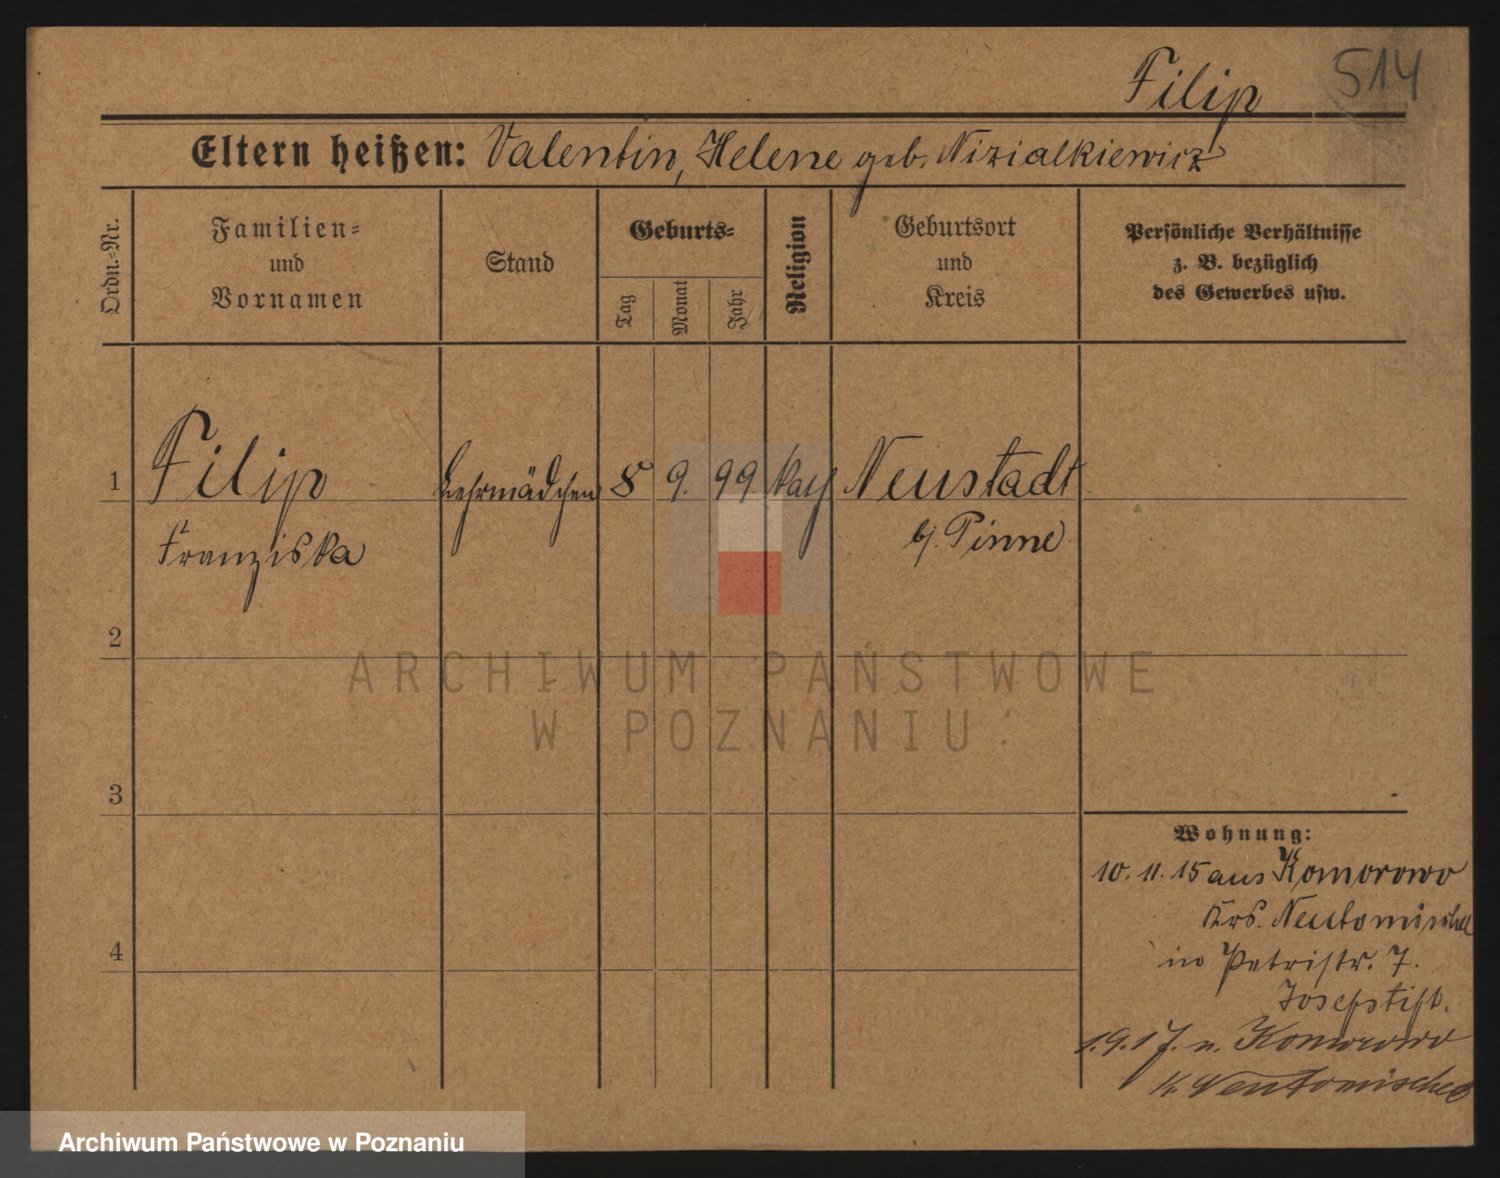 Filip 514
Eltern heißen: Valentin, Helene geb. Nizialkiewicz
Ordn.-Nr.
Familien-
und
Vornamen
Stand
Geburts-
Tag
Monat
Jahr
Religion
Geburtsort
und
Kreis
Persönliche Verhältnisse
z. B. bezüglich
des Gewerbes usw.
1 Filip Lehrmädchen 8 9. 99 kath Neustadt
Franziska b/. Pinne
2
3
4
Wohnung:
10. 11. 15 aus Komorowo
Krs. Neutomischel
in Petristr. 7.
Josefstift.
1.9.17. n. Komorowo
K. Neutomischel
ARCHIWUM PAŃSTWOWE
W POZNANIU
Archiwum Państwowe w Poznaniu